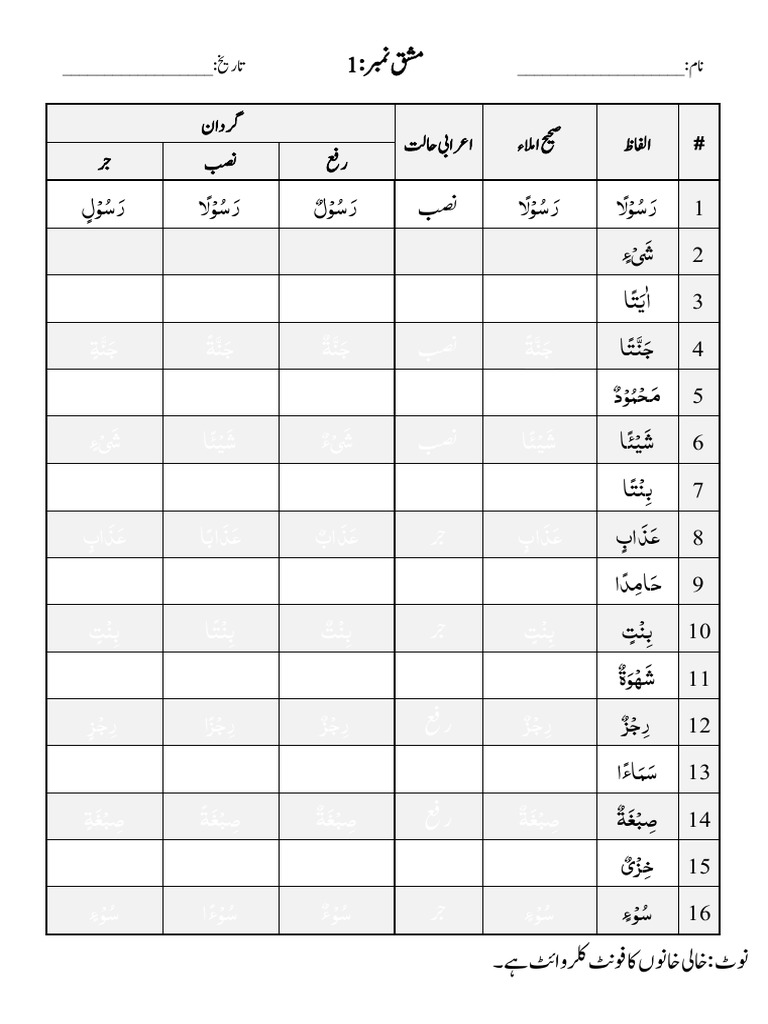 نام:__________________ مشق نمبر:1 تاریخ:________________
# الفاظ صحیح املاء اعرابی حالت گردان
رفع نصب جر
1 رَسُوْلًا رَسُوْلًا نصب رَسُوْلٌ رَسُوْلًا رَسُوْلٍ
2 شَیْءٍ
3 اٰیَتًا
4 جَنَّتًا جَنَّةً نصب جَنَّةٌ جَنَّةً جَنَّةٍ
5 مَحْمُوْدٌ
6 شَیْئًا شَیْئًا نصب شَیْءٌ شَیْئًا شَیْءٍ
7 بِنْتًا
8 عَذَابٍ عَذَابٍ جر عَذَابٌ عَذَابًا عَذَابٍ
9 حَامِدًا
10 بِنْتٍ بِنْتٍ جر بِنْتٌ بِنْتًا بِنْتٍ
11 شَهْوَةٌ
12 رِجْزٌ رِجْزٌ رفع رِجْزٌ رِجْزًا رِجْزٍ
13 سَمَاءًا
14 صِبْغَةٌ صِبْغَةٌ رفع صِبْغَةٌ صِبْغَةً صِبْغَةٍ
15 خِزْیٌ
16 سُوْءٍ سُوْءٍ جر سُوْءٌ سُوْءًا سُوْءٍ
نوٹ: خالی خانوں کا فونٹ کلر وائٹ ہے۔